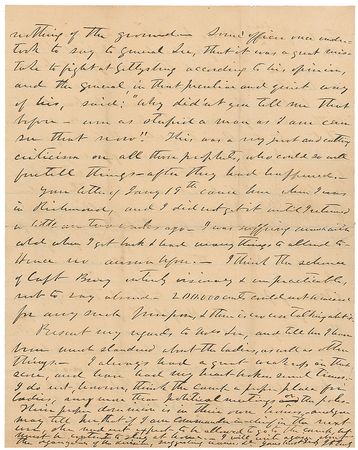 nothing of the ground— Some officer once under-
took to say to General Lee, that it was a great mis-
take to fight at Gettysburg according to his opinion,
and the General, in that peculiar and quiet way
of his, said: "Why did'nt you tell me that
before— even as stupid a man as I am can
see that now"! This was a very just and cutting
criticism on all those people, who could so well
foretell things—after they had happened.—
Your letter of Jany 19th came here when I was
in Richmond, and I did not get it until I returned
a little on two weeks ago— I was suffering
cold when I got back & had many things to attend to
Hence no answer before— I think the scheme
of Capt Berg entirely visionary & impracticable,
not to say absurd— 200,000 could not be raised
for any such purpose, & there is no use talking about it.
Present my regards to Mrs , and tell her I have
been much slandered about the ladies, as well as other
things— I always had a great weakness in that
line, and have had my heart broken several times
I do not, however, think the camp a proper place for
ladies, any more than political meetings or the polls
Their proper dominion is in their own homes, and you
may tell her that if I am Commander in chief in the next
war, she need not expect to be allowed to go to the camp, but
must be to stay at home—
the organization of the